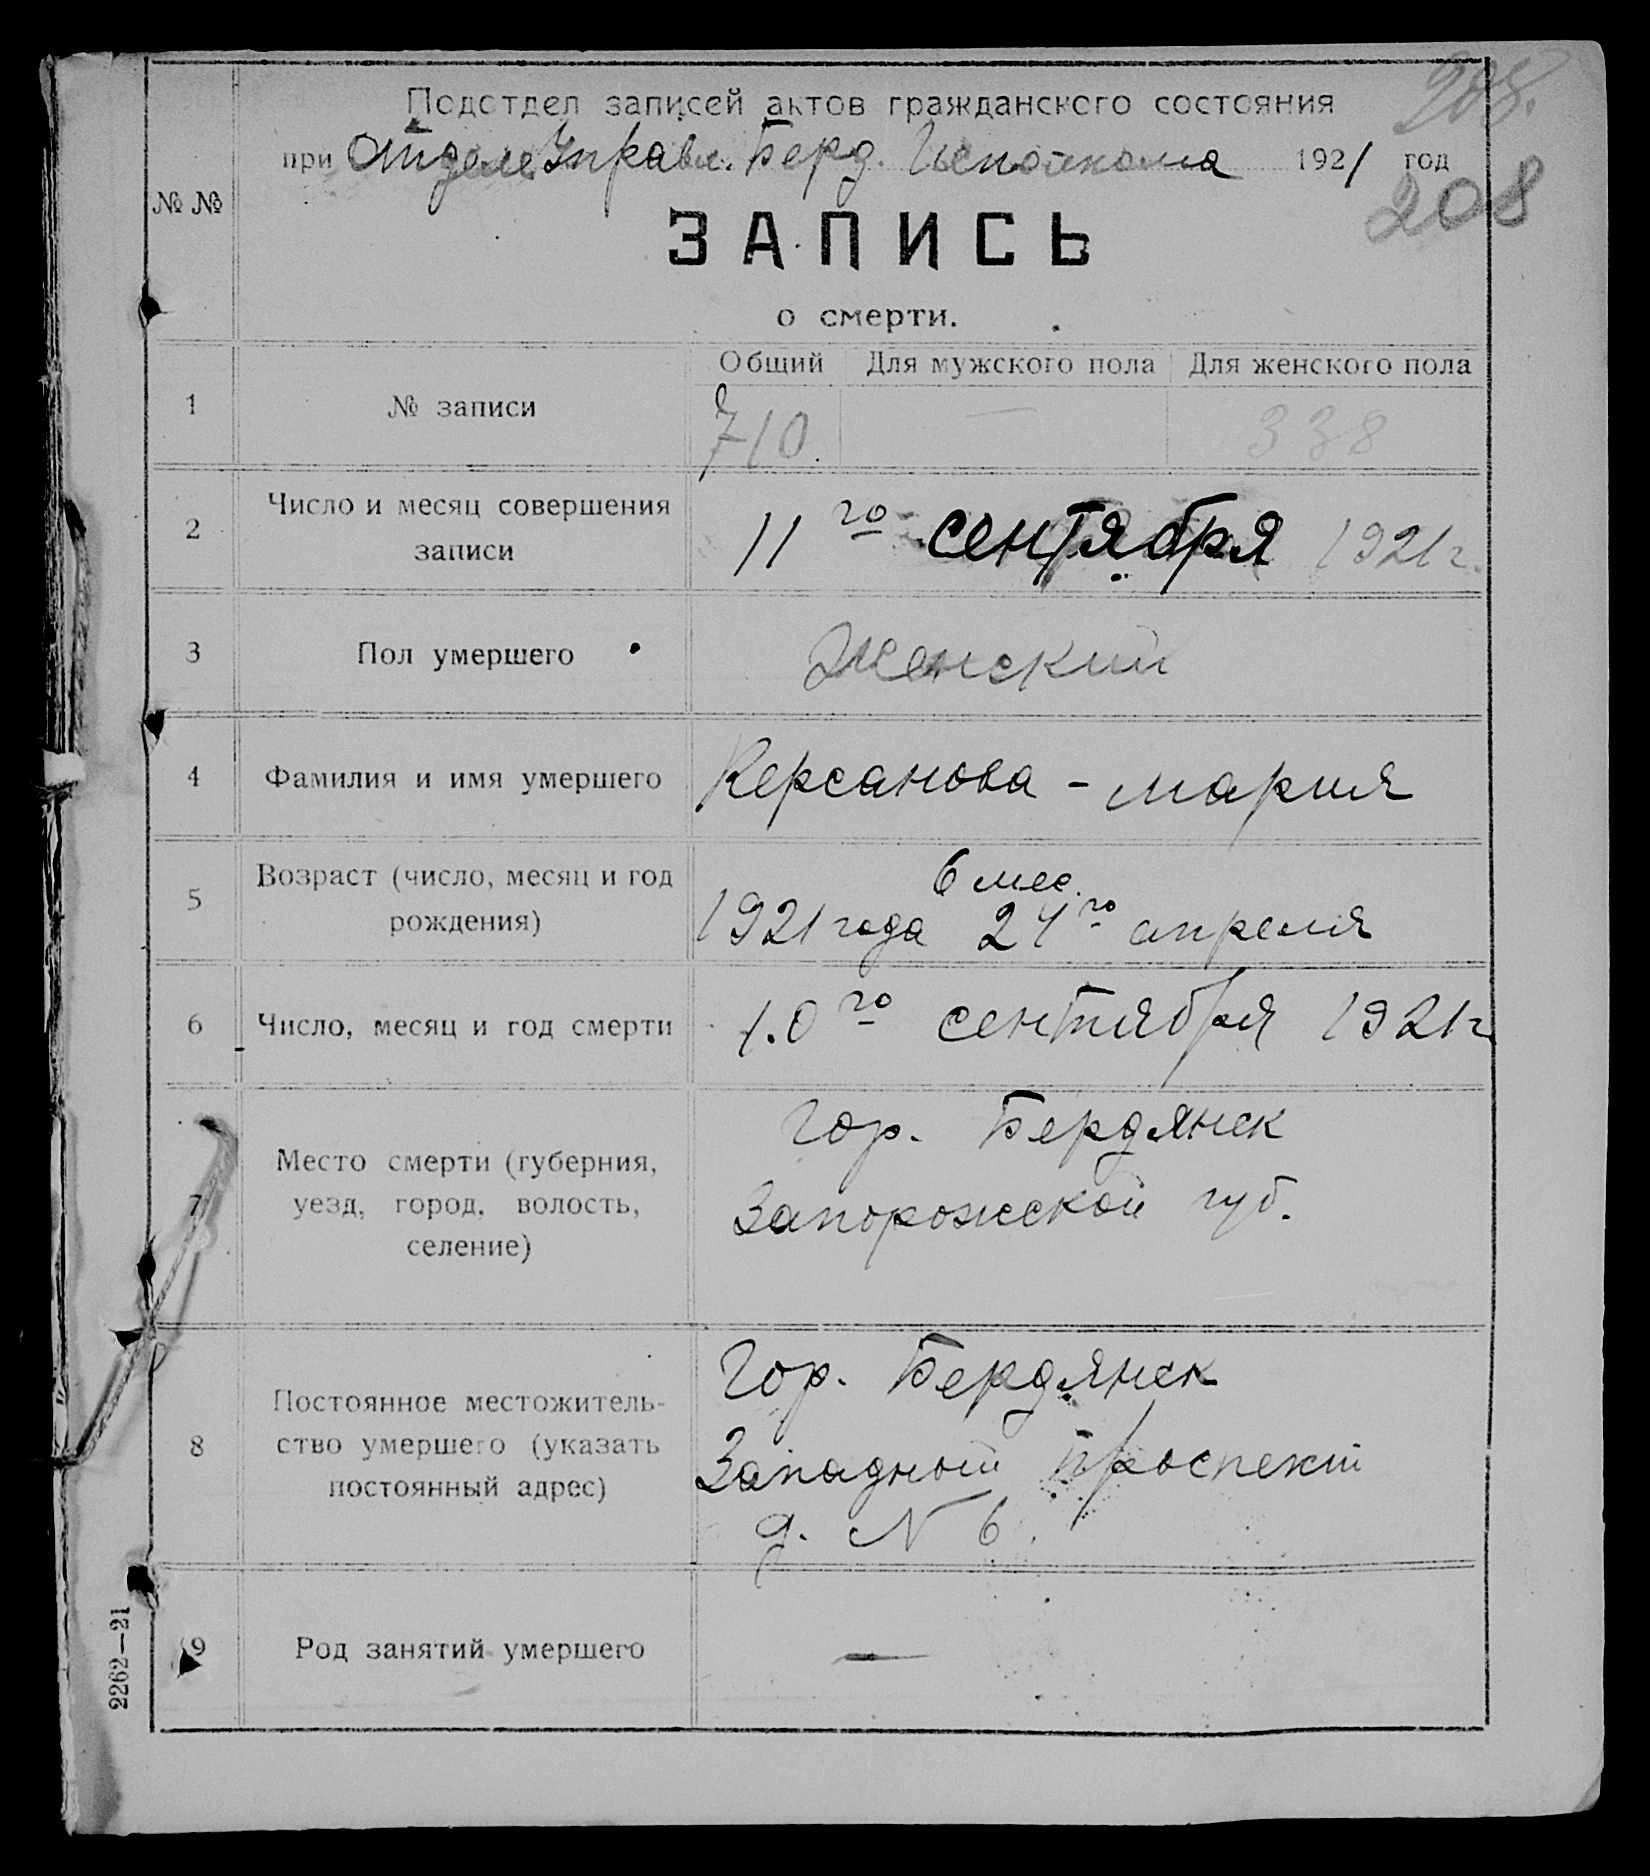 208.
Подотдел записей актов гражданского состояния
при Отделе Управл. Берд. Исполкома 1921 год
208
№ №
ЗАПИСЬ
о смерти.
Общий Для мужского пола Для женского пола
1 № записи 710. — 338
2 Число и месяц совершения
записи
11го сентября 1921 г.
3 Пол умершего Женский
4 Фамилия и имя умершего Керсанова - Мария
5 Возраст (число, месяц и год
рождения)
6 мес.
1921 года 24го апреля
6 Число, месяц и год смерти 10го сентября 1921 г
7 Место смерти (губерния,
уезд, город, волость,
селение)
Гор. Бердянск
Запорожской губ.
8 Постоянное местожитель-
ство умершего (указать
постоянный адрес)
Гор. Бердянск
Западный проспект
д. N 6.
9 Род занятий умершего —
2262—21